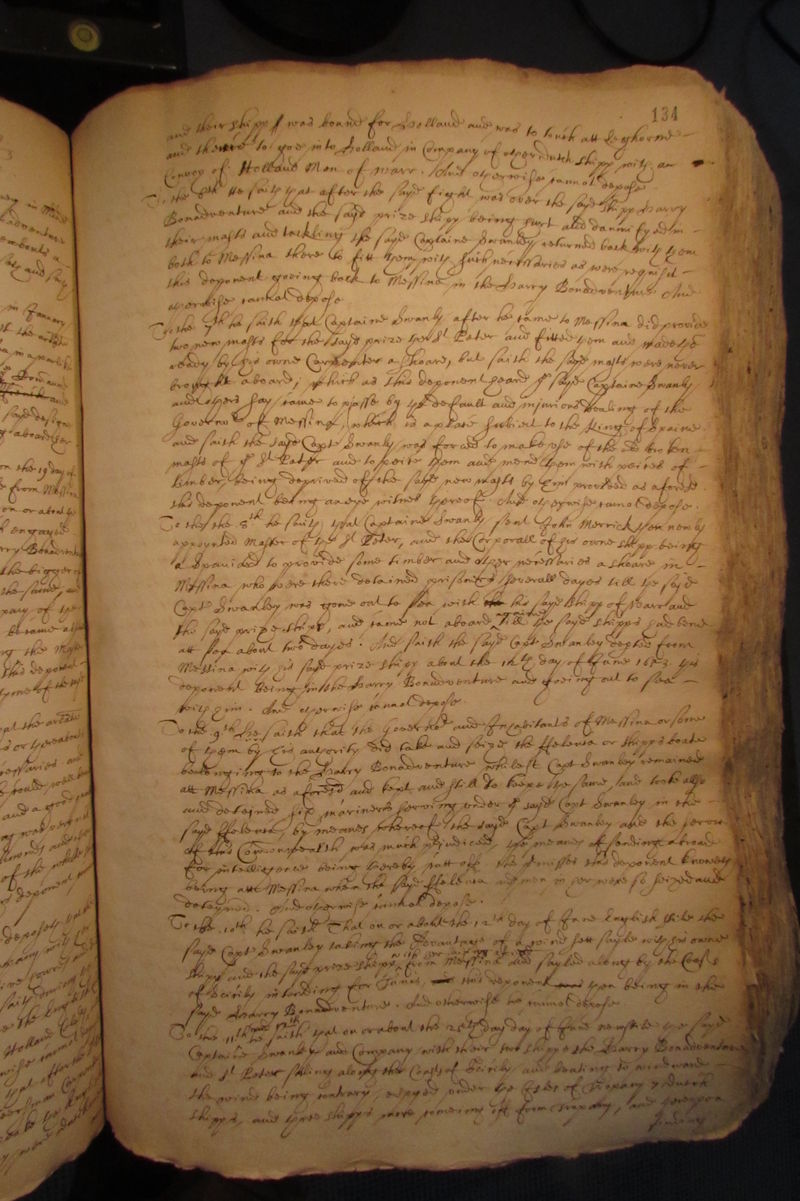 134
and their shipp was bound for Holland and was to touch att Leghorne
and thence to goe into Holland in Company of other dutch shipps with an
Convoy of Holland Men of Warr. And otherwise cannot depose.
To the 6th he saith that after the sayd fight was over the sayd shipp Harry
Bonadventure and the sayd prize shipp being hurt and damnifyed in
their masts and tackling the sayd Captaine Swanley returned back with them
both to Messina there to fitt them with such necessaries as were requisit
this deponent goeing back to Messina in the Harry Bonadventure And
otherwise cannot depose
To the 7th he saith that Captaine Swanly after he came to Messina did provide
two new masts for the sayd prize the St Peter and fitted them and made them
ready by his owne Carpenter a shoare, but saith the sayd masts were never
brought aboard; which as this deponent heard the sayd Captaine Swanly
and others say came to passe by the default and injurious dealing of the
Governor of Messina, which is a place subiect to the King of Spaine
and saith the sayd Capt Swanly was forced to make use of the old broken
masts of the St Peter and to peice them and mend them with peices of
timber, being deprived of the sayd new masts by him provided as aforesd
this deponent being an eye witnes thereof And otherwise cannot depose.
To the 8th he saith that Captaine Swanly sent John Merrick then newly
appoynted Master of the St Peter, and the Corporall of his owne shipp being
a Spaniard to provide some timber and other necessaries a shoare in
Messina who were there detained prisoners severall dayes till the sayd
Capt Swanley was gone out to sea with his sayd shipp of warr and
the sayd prize shipp, and came not aboard againe till the sayd shipps had bene
att sea about two dayes. And saith the sayd Capt Swanley depted from
Messina with his sayd prize shipp about the 12th day of June 1653 this
deponent being in the Harry Bonadventure and goeing out to sea
with him. And otherwise cannot depose.
To the 9th hee saith that the Governor and Inhabitants of Messina or some
of them by his authority did take and seize the Feluca or shipps boate
belonging to the Harry Bonadventure whilest Capt Swanley remained
att Messina as aforesd and kept and still do keepe the same, and tooke also
and detained six mariners serving under the sayd Capt Swanley in the
sayd Feluca, by meanes whereof the sayd Capt Swanley and the service
of this Commonwealth was much prejudiced, the meanes of sending abroad
for intelligence being thereby putt off the premisses this deponent knoweth
being att Messina when the sayd Feluca and men in her were so seized and
detayned. And otherwise cannot depose.
To the 10th he saith That on or about the 12th day of June English stile the
sayd Capt Swanley taking the Advantage of a wind sett sayle with his owne
shipp and the sayd prize shipp from Messina and sayled along by the Coast
of Sicily intending for Tunis, this deponent then being in the
sayd Harry Bonadventure. And otherwise he cannot depose.
To the 11th and 12th he saith that on or about the 25th day of June newstile the sayd
Captaine Swanley and Company with their two shipps the Harry Bonadventure
and St Peter sailing along the Coast of Sicily and beating to windward
the winde being contrary, espyed under the Castle of Trapany 7 dutch
shipps, and three shipps more comeing off from Trapany, and thereupon
finding